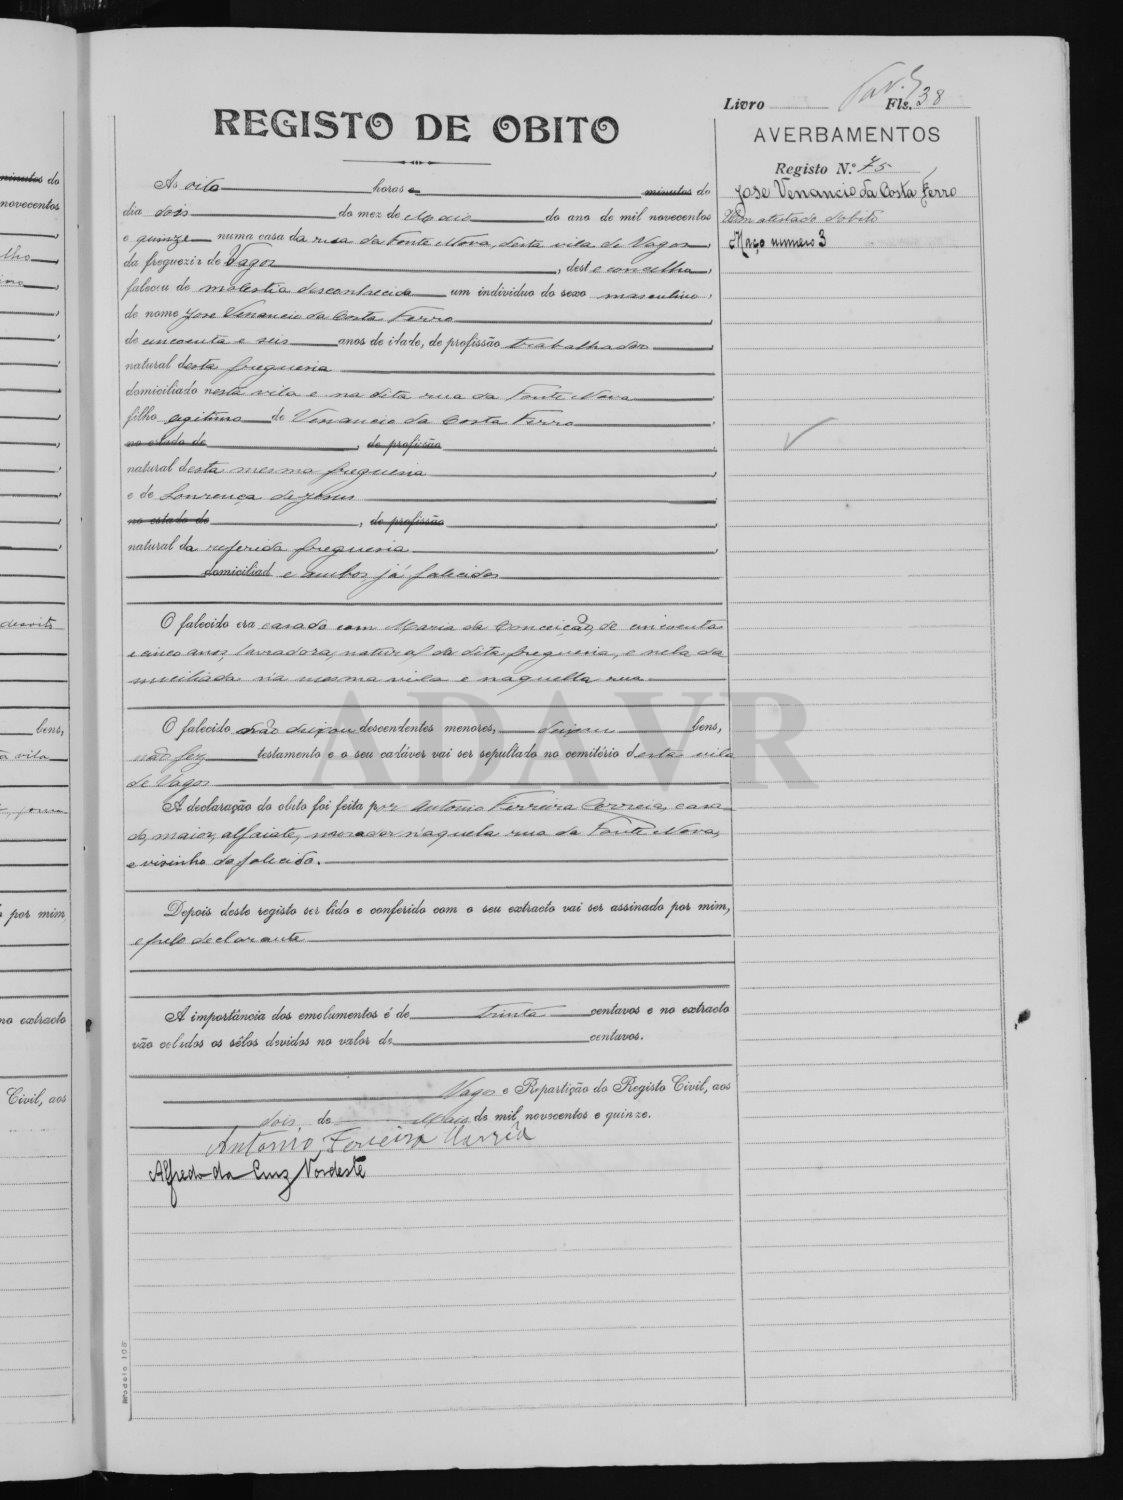 minutos do
novecentos
lho
bens,
a vila
o por mim,
no extracto
Civil, aos
Livro Fls. 38
REGISTO DE OBITO
AVERBAMENTOS
Registo N.º 75
Jose Venancio da Costa Ferro
atestado dobito
Maço numero 3
As oito horas e minutos do
dia dois do mez de Maio do ano de mil novecentos
e quinze numa casa da rua da Fonte Nova, desta vila de Vagos,
da freguezia de Vagos, deste concelho,
faleceu de molestia desconhecida um individuo do sexo masculino,
de nome Jose Venancio da Costa Ferro
de cincoenta e seis anos de idade, de profissão trabalhador
natural desta freguesia
domiciliado nesta vila e na dita rua da Fonte Nova
filho legitimo de Venancio da Costa Ferro
no estado de, de profissão
natural desta mesma freguesia
e de Lourença de Jesus
no estado de, de profissão
natural da referida freguesia
domiciliad e ambos já falecidos
O falecido era casado com Maria da Conceição, de cincoenta
e cinco anos, lavradora, natural da dita freguesia, e nela do
miciliada na mesma vila e naquella rua
O falecido não deixou descendentes menores, deixou bens,
não fez testamento e o seu cadáver vai ser sepultado no cemitério desta vila
de Vagos
A declaração do obito foi feita por Antonio Ferreira Correia, casa
do, maior, alfaiate, morador n'aquela rua da Fonte Nova,
e visinho do falecido.
Depois deste registo ser lido e conferido com o seu extracto vai ser assinado por mim,
e pelo declarante
A importância dos emolumentos é de trinta centavos e no extracto
vão colados os sêlos devidos no valor de centavos.
Vagos e Repartição do Registo Civil, aos
dois, de Maio de mil novecentos e quinze.
Antonio Ferreira Correia
Alfredo da Cruz Nordeste
Modelo 105
ADAVR